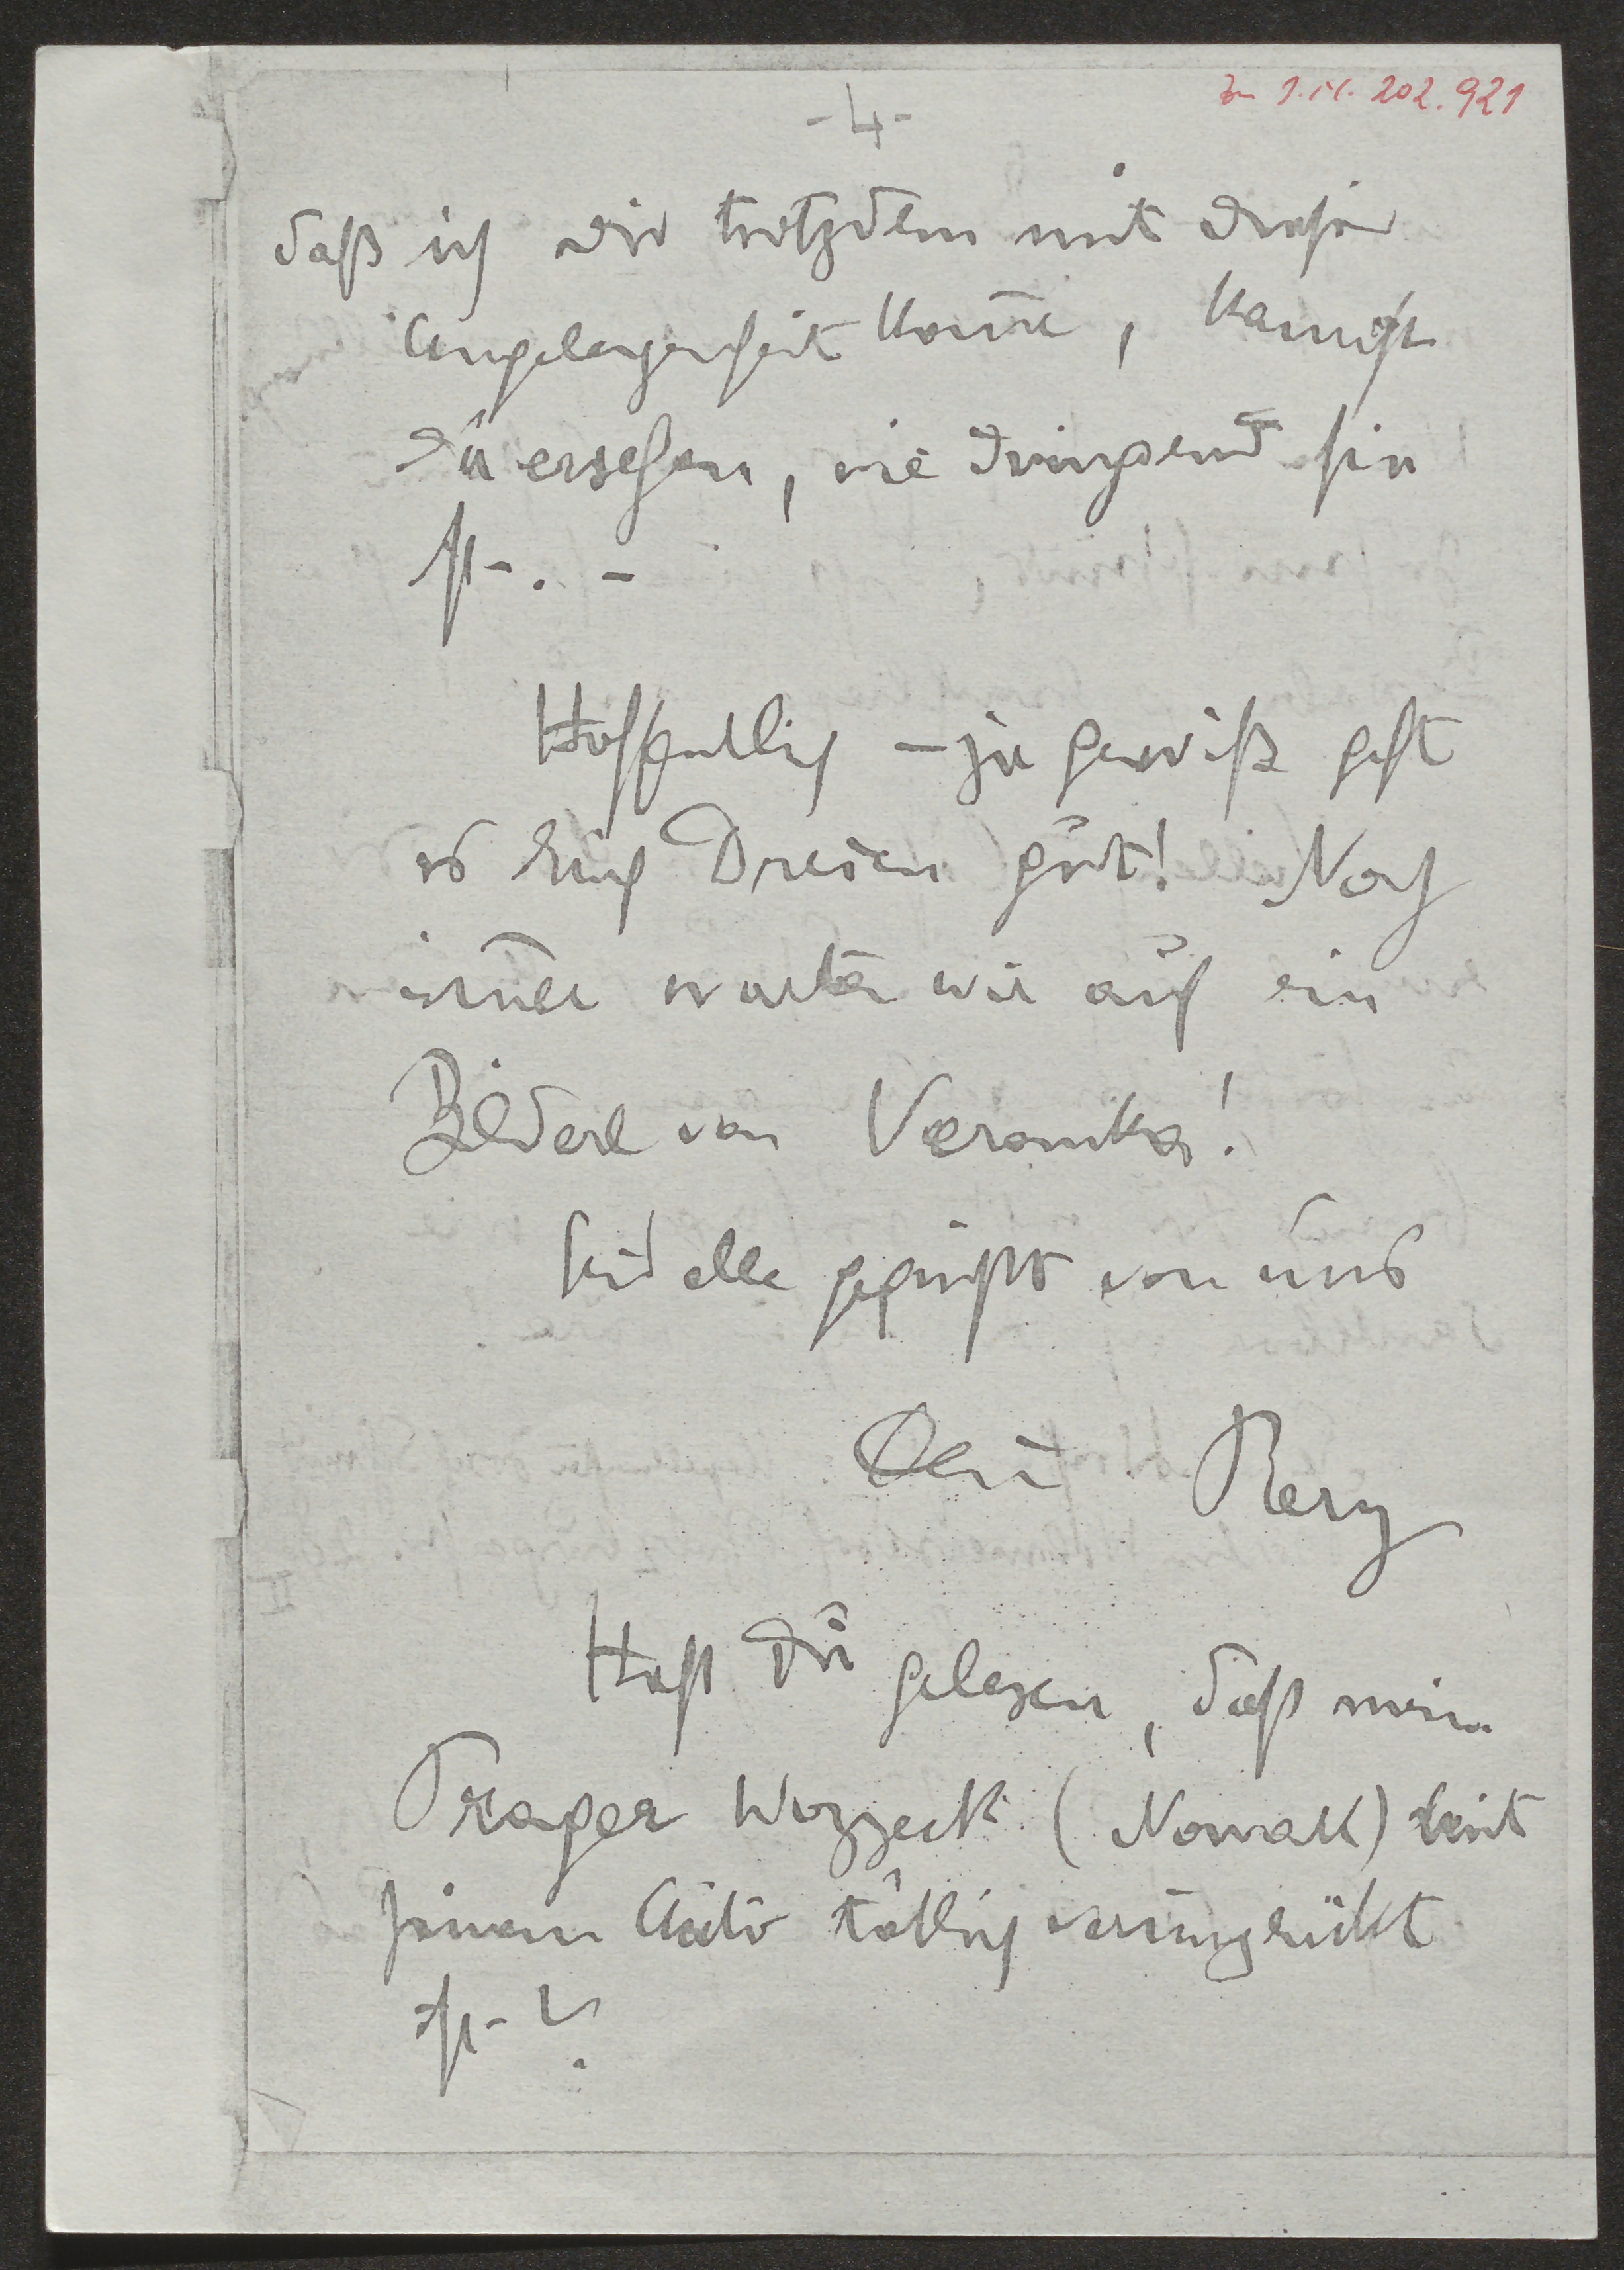 - 4 -
daß ich dir trotzdem mit dieser
Angelegenheit kom̄e, kannst
Du ersehen, wie dringend sie
ist. –
Hoffentlich – ja gewiß geht
es Euch Dreien gut! Noch
im̄er warten wir auf ein
Bilderl von Veronika!
Seid alle gegrüßt von uns
Dein Berg
Hast Du gelesen, daß mein
Prager Wozzeck (Nowak) mit
seinem Auto tötlich verunglückt
ist?
202.921